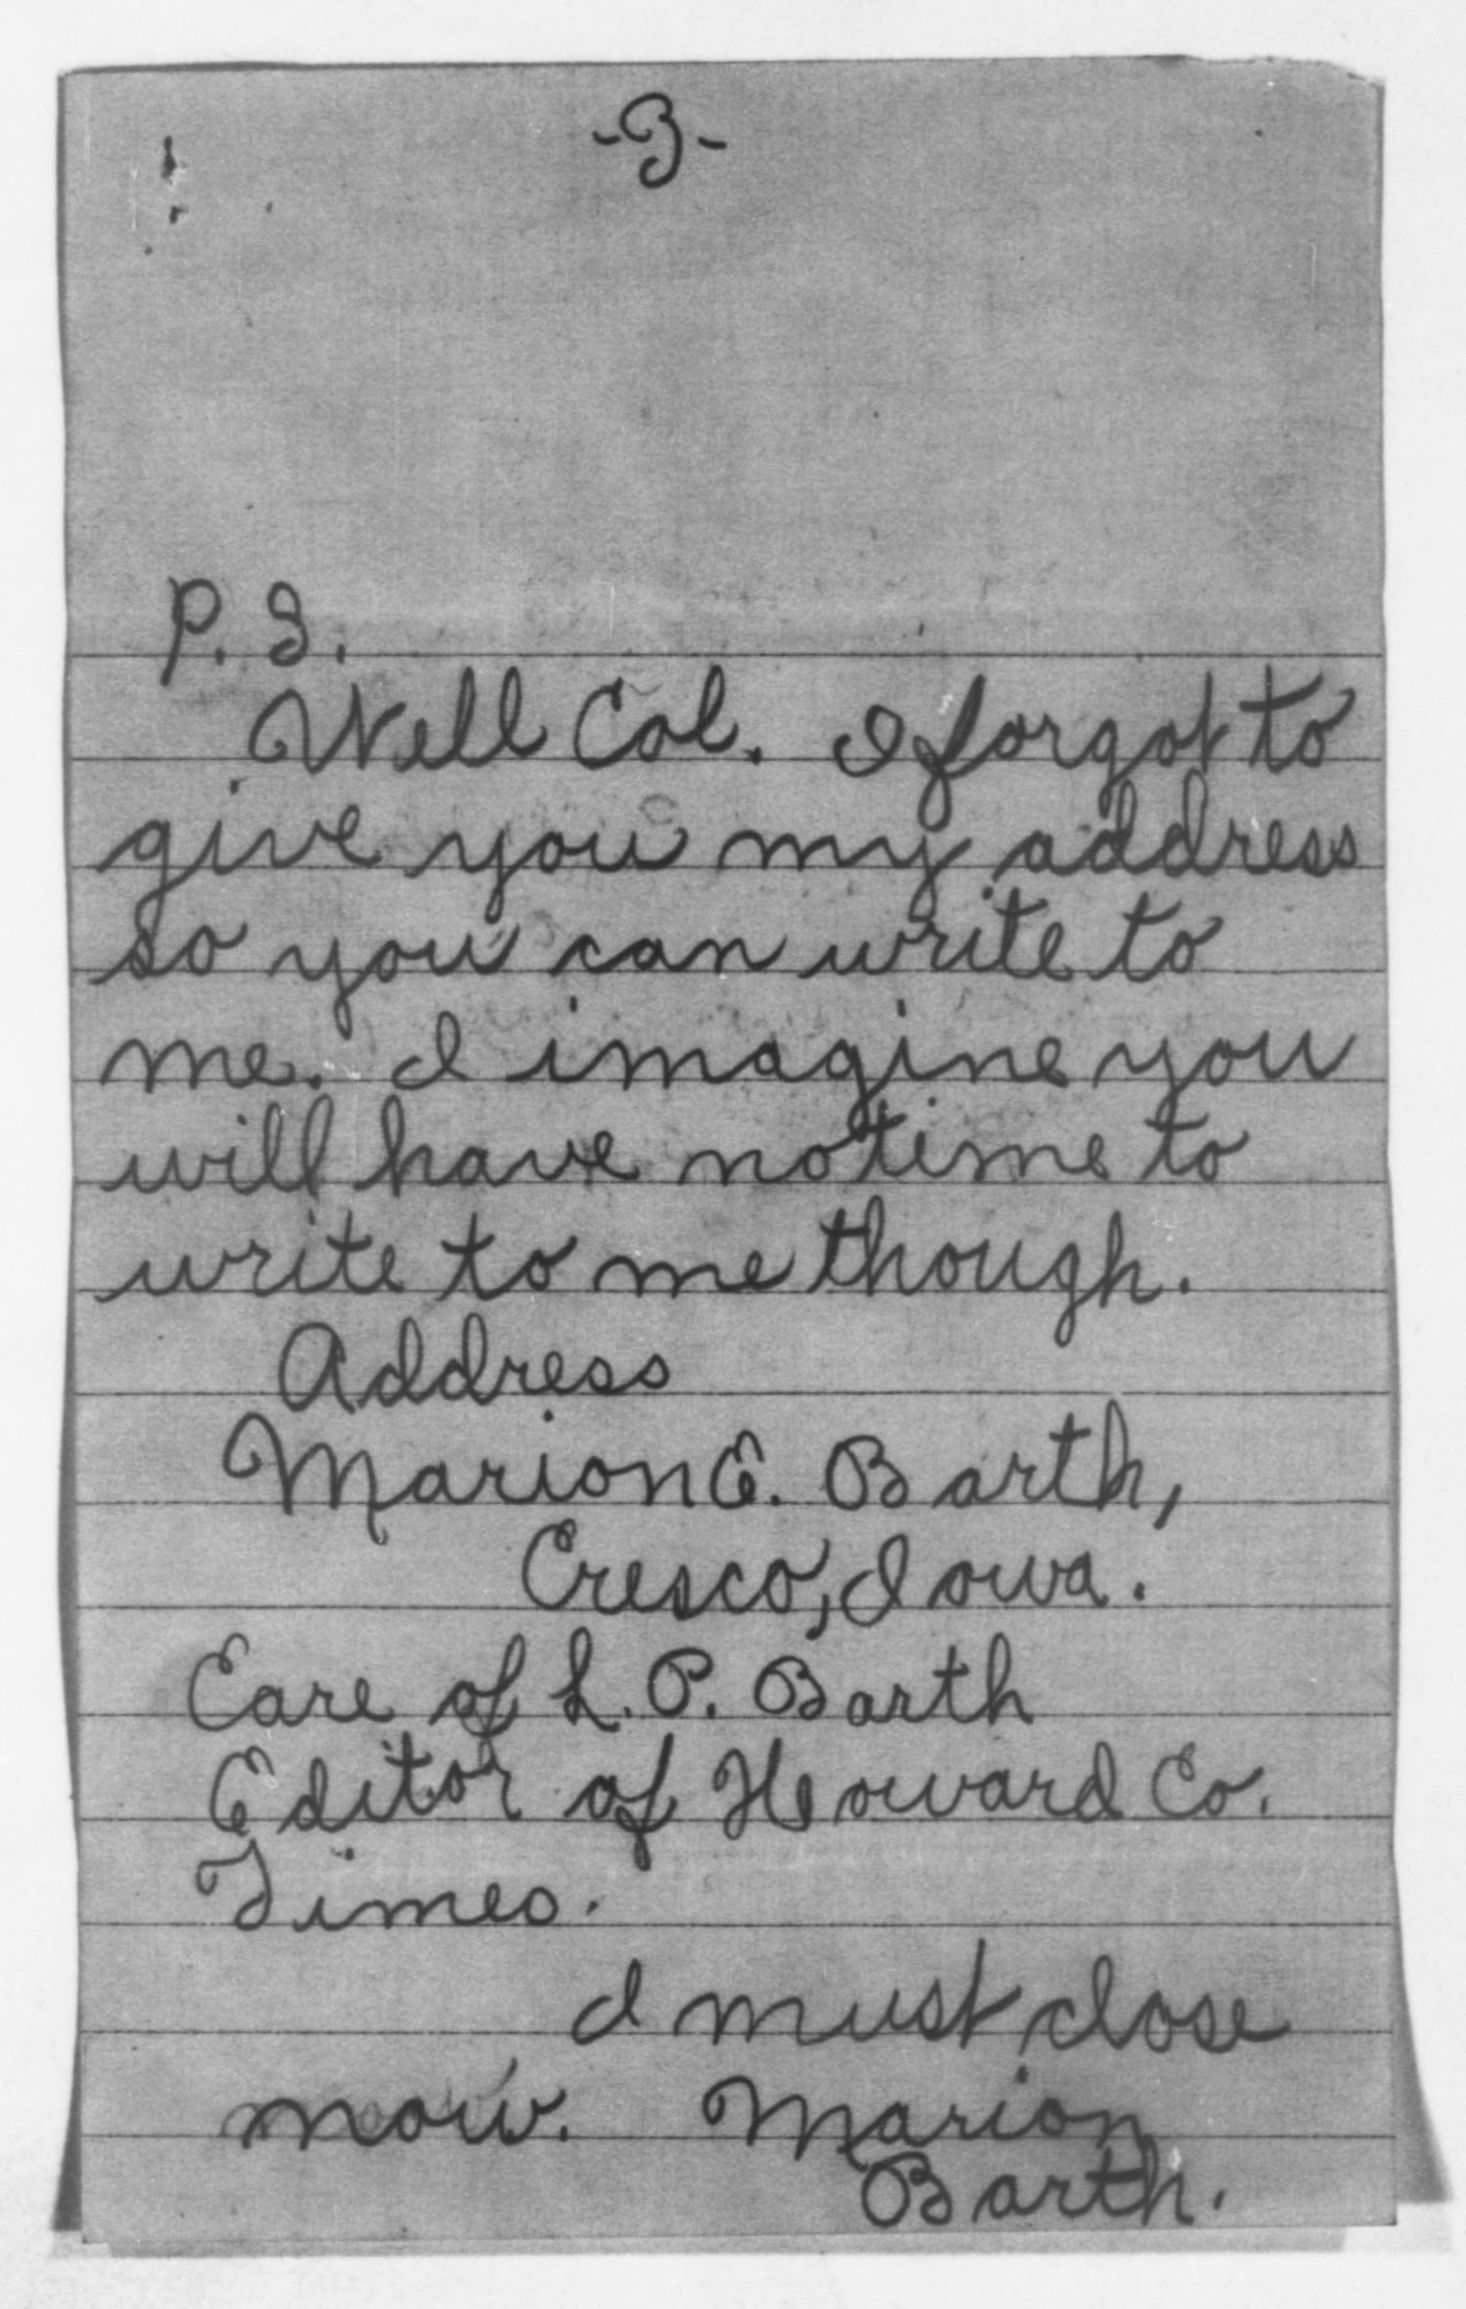 -3-
P. S.
Well Col. I forgot to
give you my address
so you can write to
me. I imagine you
will have no time to
write to me though.
Address
Marion E. Barth,
Cresco, Iowa.
Care of L. P. Barth
Editor of Howard Co.
Times.
I must close
now. Marion
Barth.